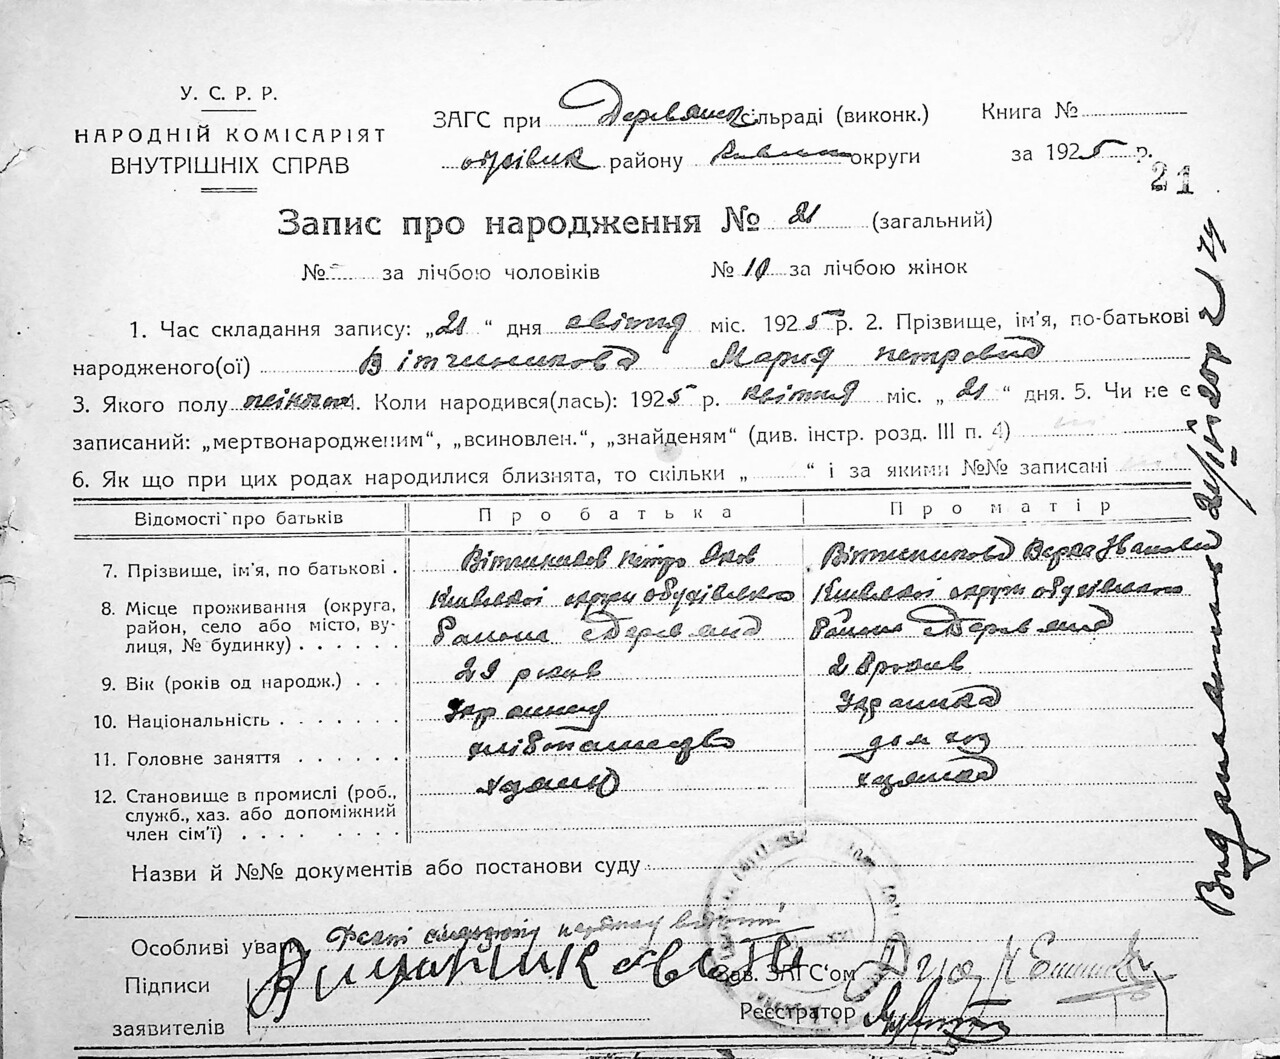 У. С. Р. Р.
НАРОДНІЙ КОМІСАРІЯТ
ВНУТРІШНІХ СПРАВ
ЗАГС при Деревянс сільраді (виконк.) Книга №
району округи за 1925 р.
21
Запис про народження № 21 (загальний)
№ за лічбою чоловіків № 10 за лічбою жінок
1. Час складання запису: „21“ дня квітня міс. 1925 р. 2. Прізвище, ім'я, по-батькові
народженого(ої) Вітчиникова Мария петровна
3. Якого полу 4. Коли народився(лась): 1925 р. квітня міс. „21“ дня. 5. Чи не є
записаний: „мертвонародженим“, „всиновлен.“, „знайденям“ (див. інстр. розд. III п. 4)
6. Як що при цих родах народилися близнята, то скільки „ “ і за якими №№ записані
Відомості про батьків Про батька Про матір
7. Прізвище, ім'я, по батькові . петро Яков Вера Іванов
8. Місце проживання (округа, Київської округи обухівського Київської округи обухівського
район, село або місто, ву- Района Дерев'яна Района Дерев'яна
лиця, № будинку) . . . . . .
9. Вік (років од народж.) . . . 29 років 28 років
10. Національність . . . . . . . Украинка
11. Головне заняття . . . . . . хліборобство дом хоз
12. Становище в промислі (роб.,
служб., хаз. або допоміжний
член сім'ї) . . . . . . . . .
Назви й №№ документів або постанови суду
Особливі уваги
Підписи Зав. ЗАГС'ом
заявителів Реєстратор